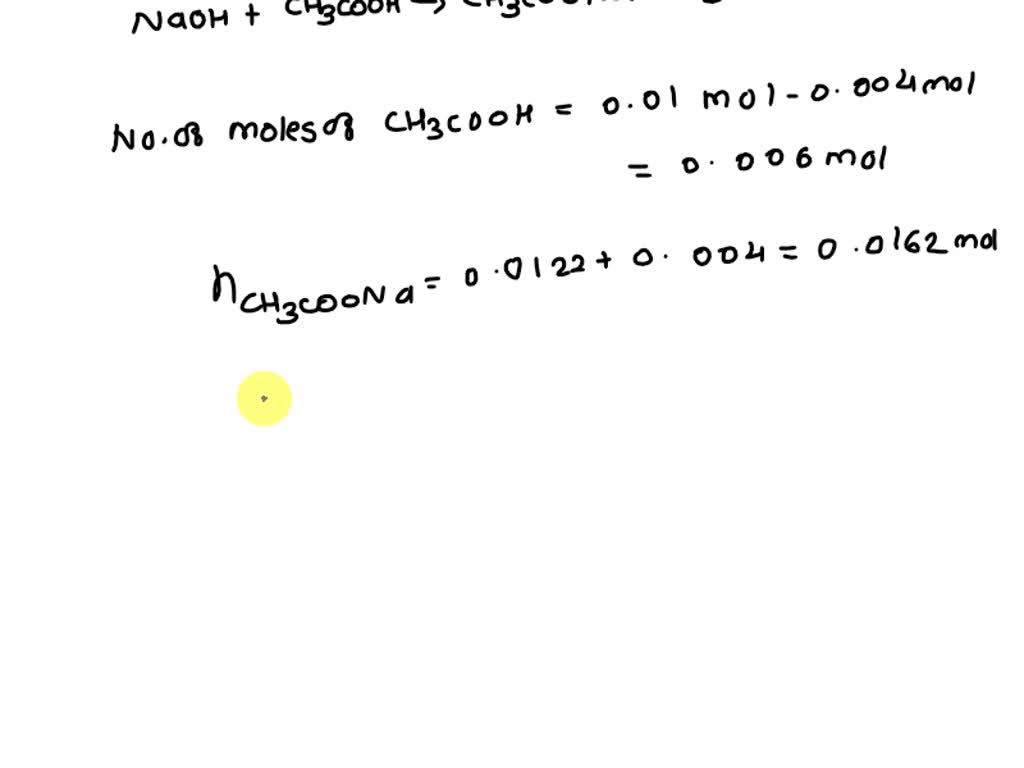 NaOH + CH3COOH →
No. of moles of CH3COOH = 0.01 mol - 0.004 mol
= 0.006 mol
nCH3COONa = 0.0122 + 0.004 = 0.0162 mol